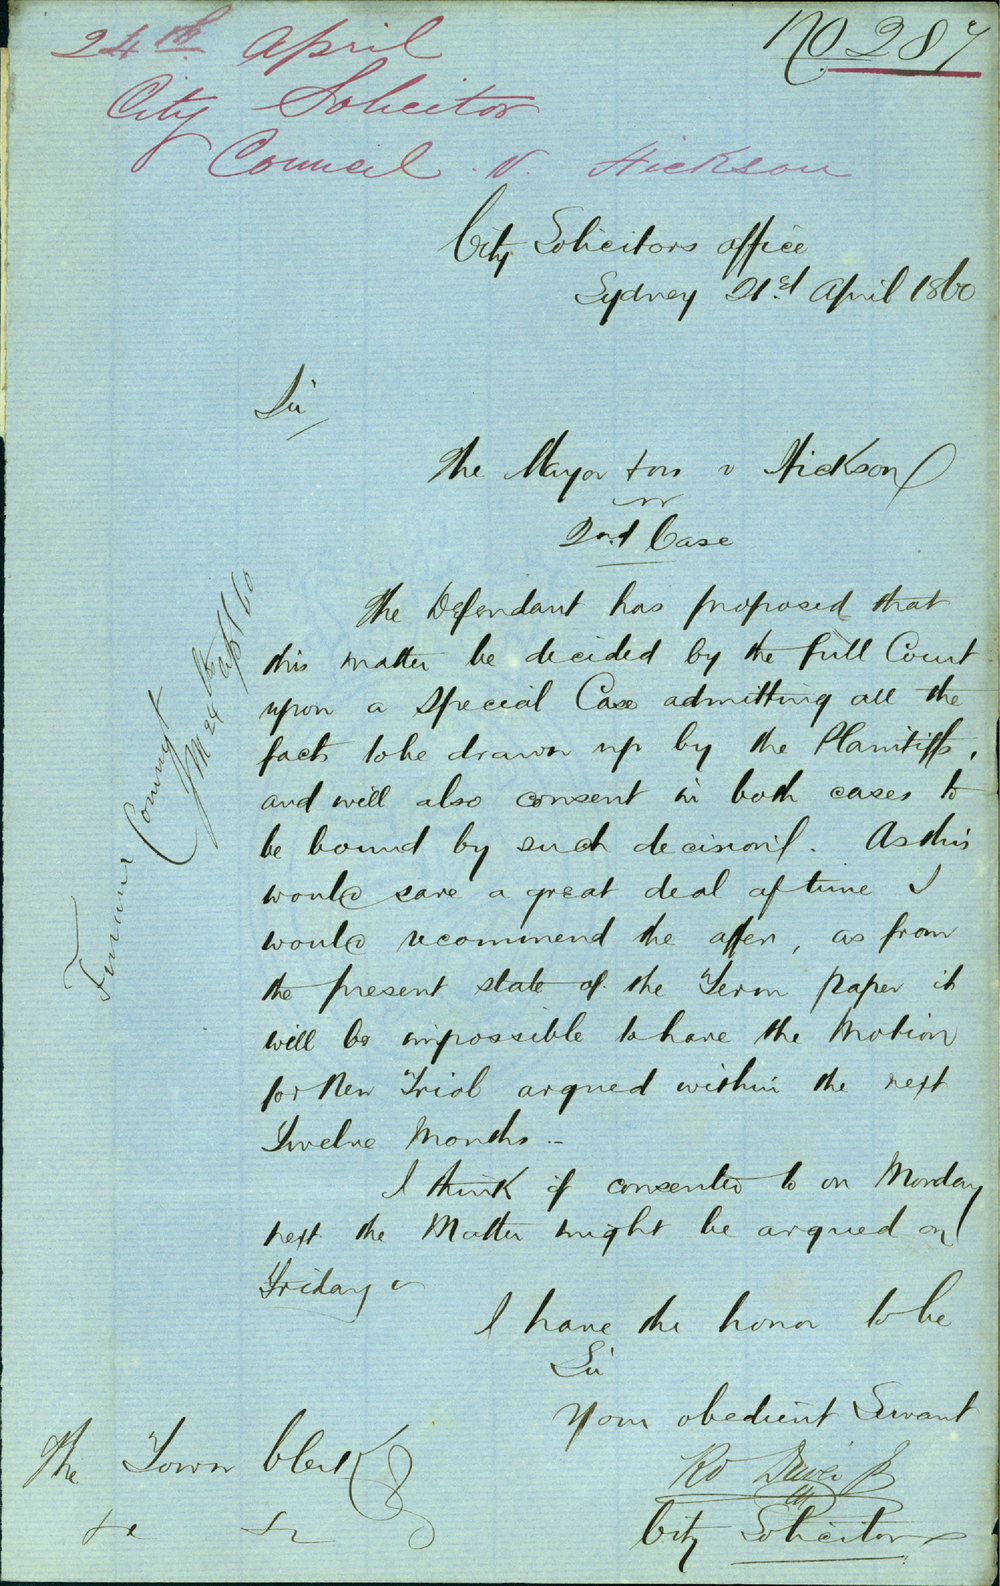 No 287
24th April
City Solicitor
Council v. Hickson
City Solicitors office
Sydney 21st April 1860
Sir
The Mayor & ors v Hickson
2nd Case
The Defendant has proposed that
this matter be decided by the full Court
upon a Special Case admitting all the
facts to be drawn up by the Plaintiffs,
and will also consent in both cases to
be bound by such decision. As this
would save a great deal of time I
would recommend the offer, as from
the present state of the Term paper it
will be impossible to have the Motion
for New Trial argued within the next
Twelve Months -
I think if consented to on Monday
next the Matter might be argued on
Friday
I have the honor to be
Sir
Your obedient Servant
City Solicitor
The Town Clerk
&c &c
Finance Committ
24th Apl 60